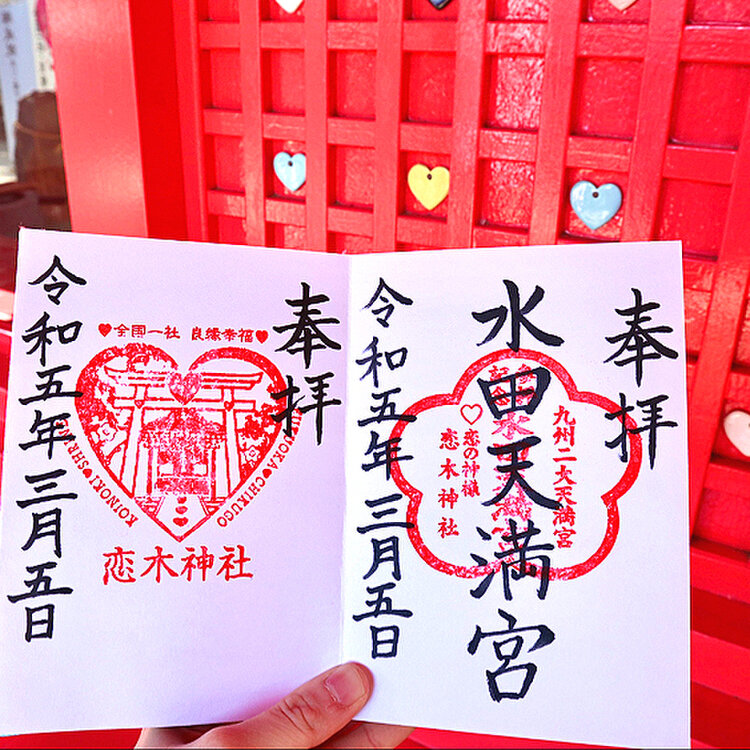 奉拝
水田天満宮
九州二大天満宮
♡恋の神様
恋木神社
令和五年三月五日
奉拝
♥全国一社 良縁幸福♥
KOINOKI・SHR
UOKA・CHIKUGO
恋木神社
令和五年三月五日